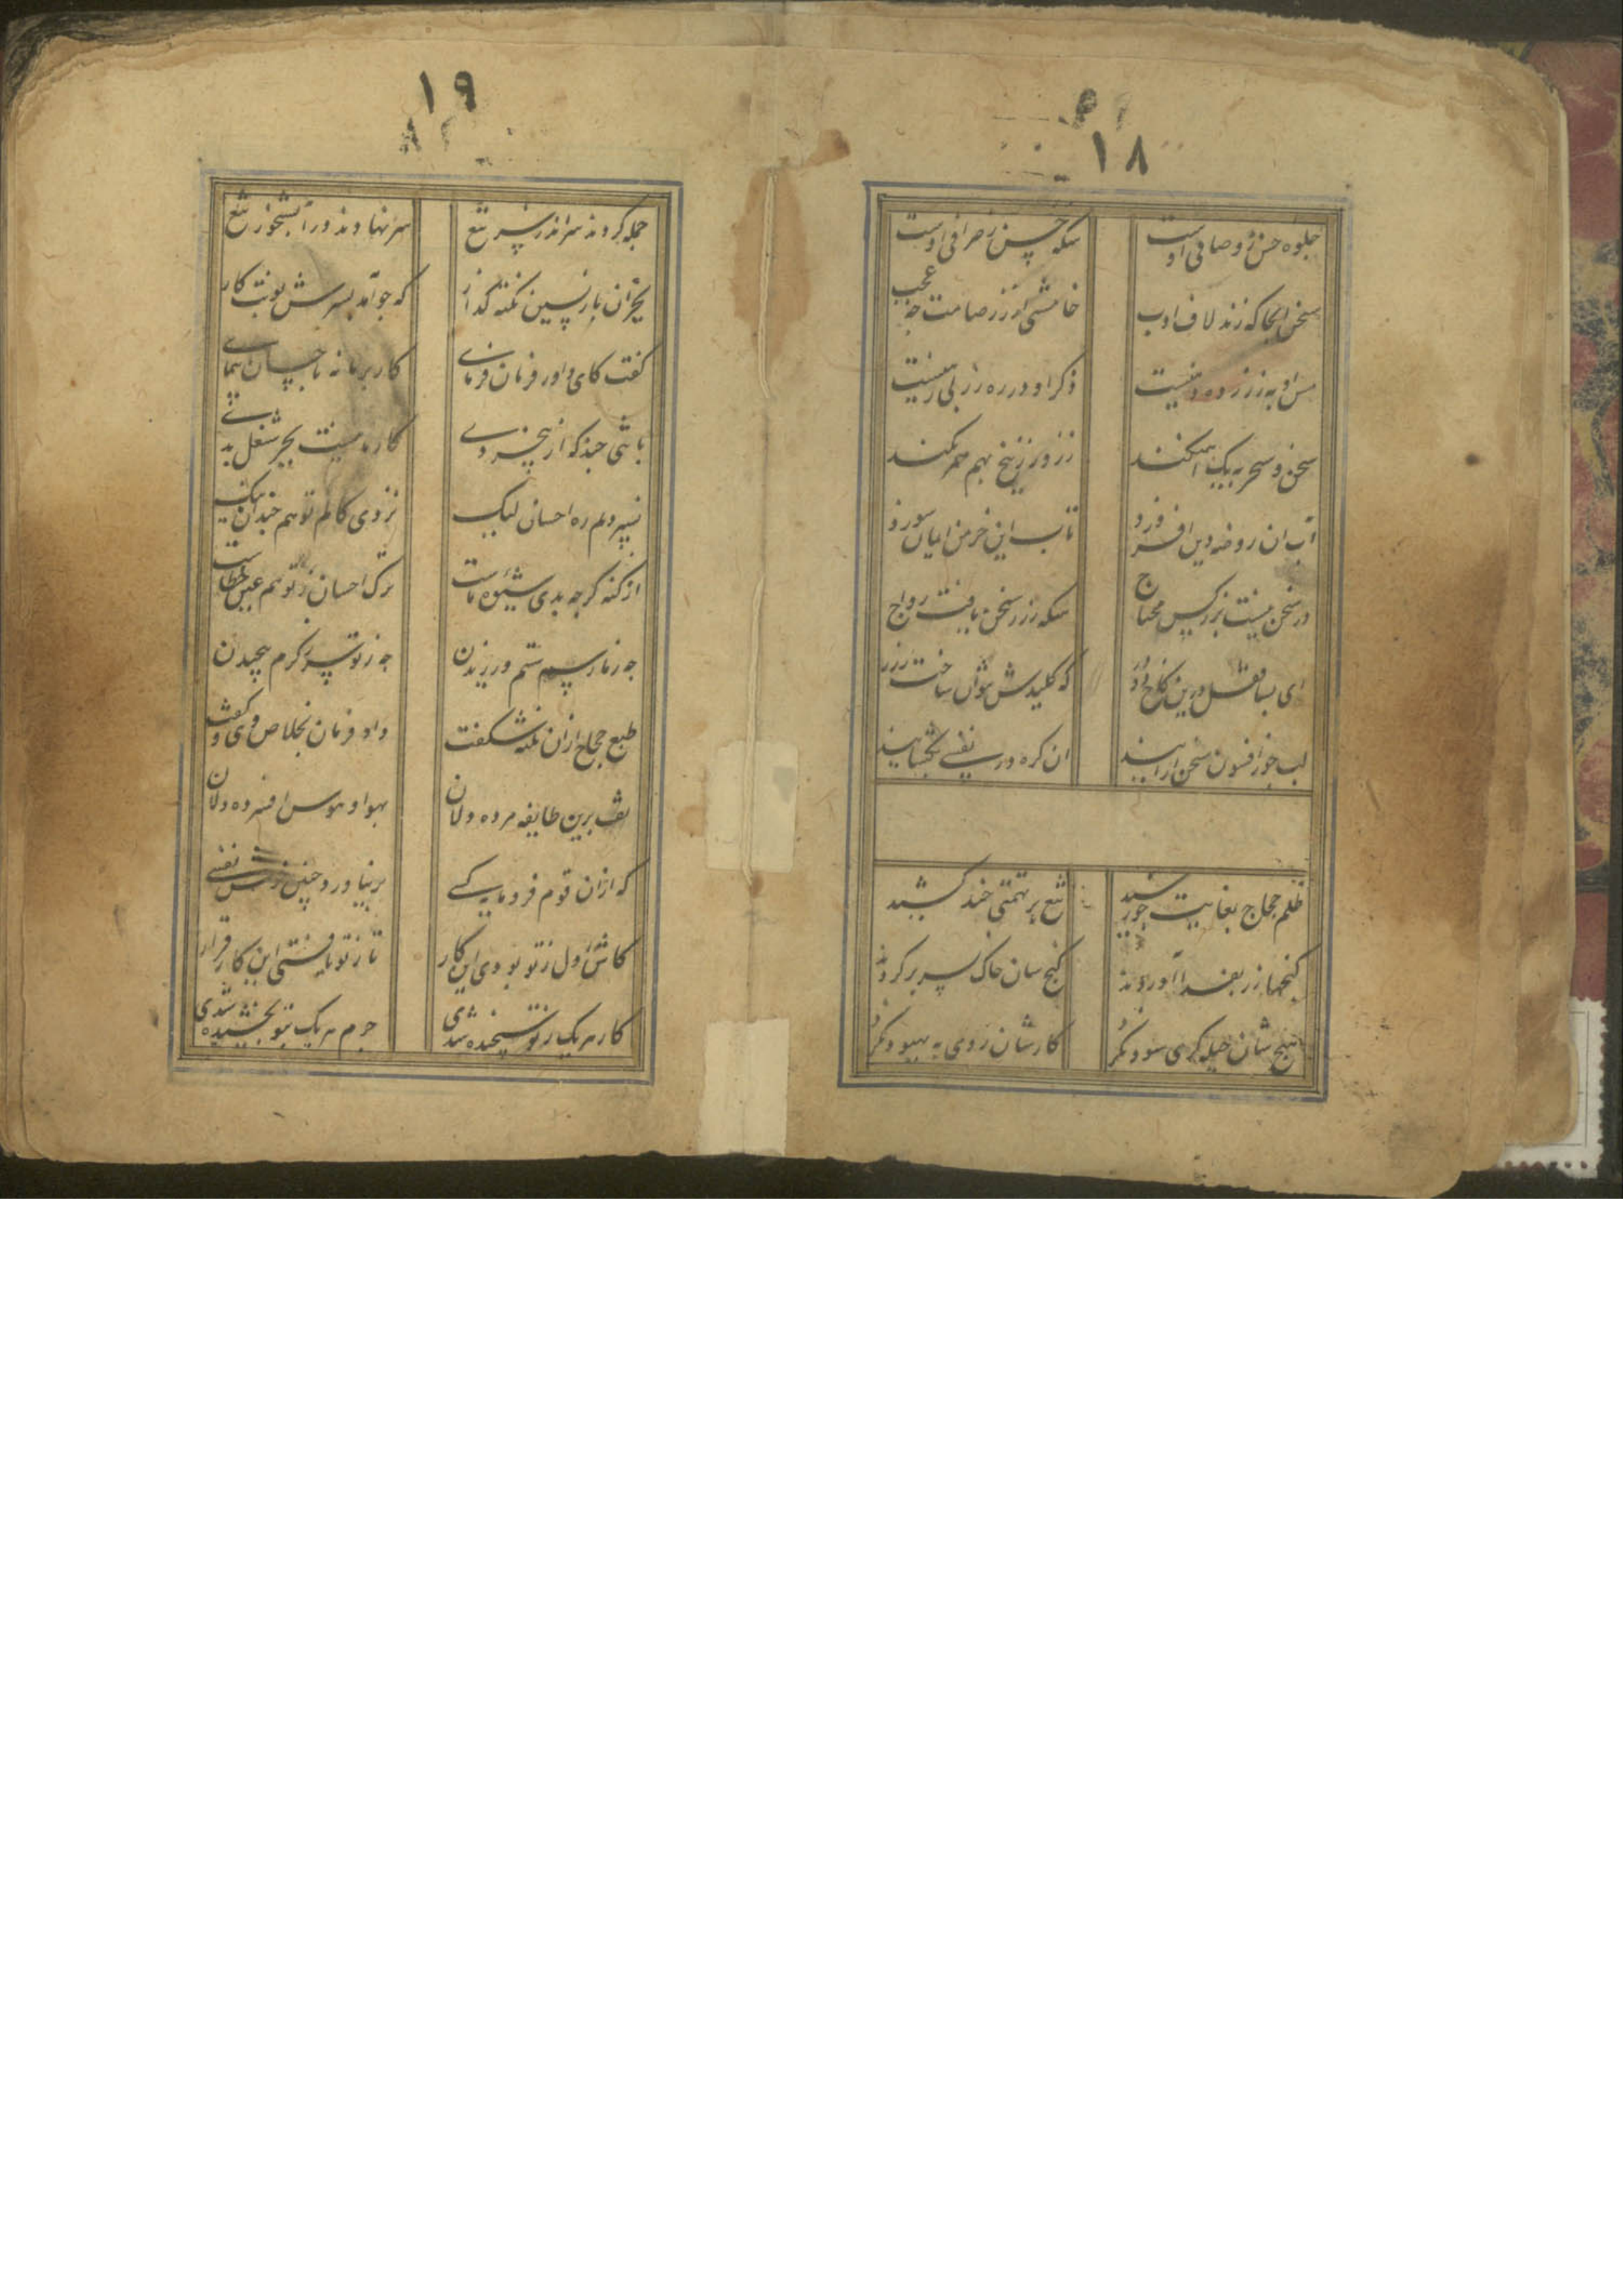 ۱۸
جلوه حسن ز وصافی اوست سکه حسن ز صرافی اوست
سخن انجا که زند لاف ادب خامشی از زر صامت چه عجب
مس او به ز زر ده دهیست ذکر او در ره زر بی رهیست
سخن و سحر به یک کنند زر و زرنیخ بهم کنند
آب ان روضه دین افروزد تاب این خرمن ایمان سوزد
در سخن نیست بزر کس محتاج سکه زر ز سخن یافت رواج
ای بسا قفل درین کاخ دو در که کلیدش نتوان ساخت ز زر
لب چو از افسون سخن ارایند ان کره در نفسی بکشایند
ظلم حجاج بغایت چو رسید تیغ بر تهمتی چند کشید
کنجها زر بفدا آوردند کنج سان خاک بسر بر کردند
هیچ شان حیله کری سود نکرد کارشان روی به بهبود نکرد
۱۹
جمله کردند سر اندر سر تیغ سر نهادند در آبشخور تیغ
بجز آن بازپسین نکته گذار که چو آمد بسرش نوبت کار
گفت کای داور فرمان فرمای کار بر ما نه باحسان پیمای
باشی چند که از بیخردی کار ما نیست بجز شغل بدی
نسپردیم ره احسان لیک نزدی کام تو هم چندان نیک
از کنه کرچه بدی شیوه ماست ترک احسان ز تو هم عین خطاست
چه ز ما رسم ستم ورزیدن چه ز تو سر ز کرم پیچیدن
طبع حجاج ازان نکته شکفت داد فرمان بخلاص وی و گفت
تف برین طایفه مرده دلان بهوا و هوس افسرده دلان
که ازان قوم فرومایه کسی بر نیاورد چنین خوش نفسی
کاش اول ز تو بودی این کار تا ز تو یافتی این کار قرار
کار هر یک ز تو سنجیده شدی جرم هر یک بتو بخشیده شدی